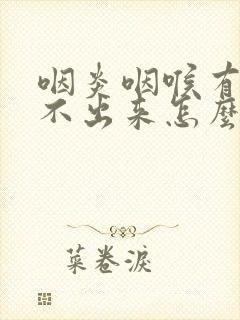 咽炎咽喉有
不出来怎麽
菜卷淚